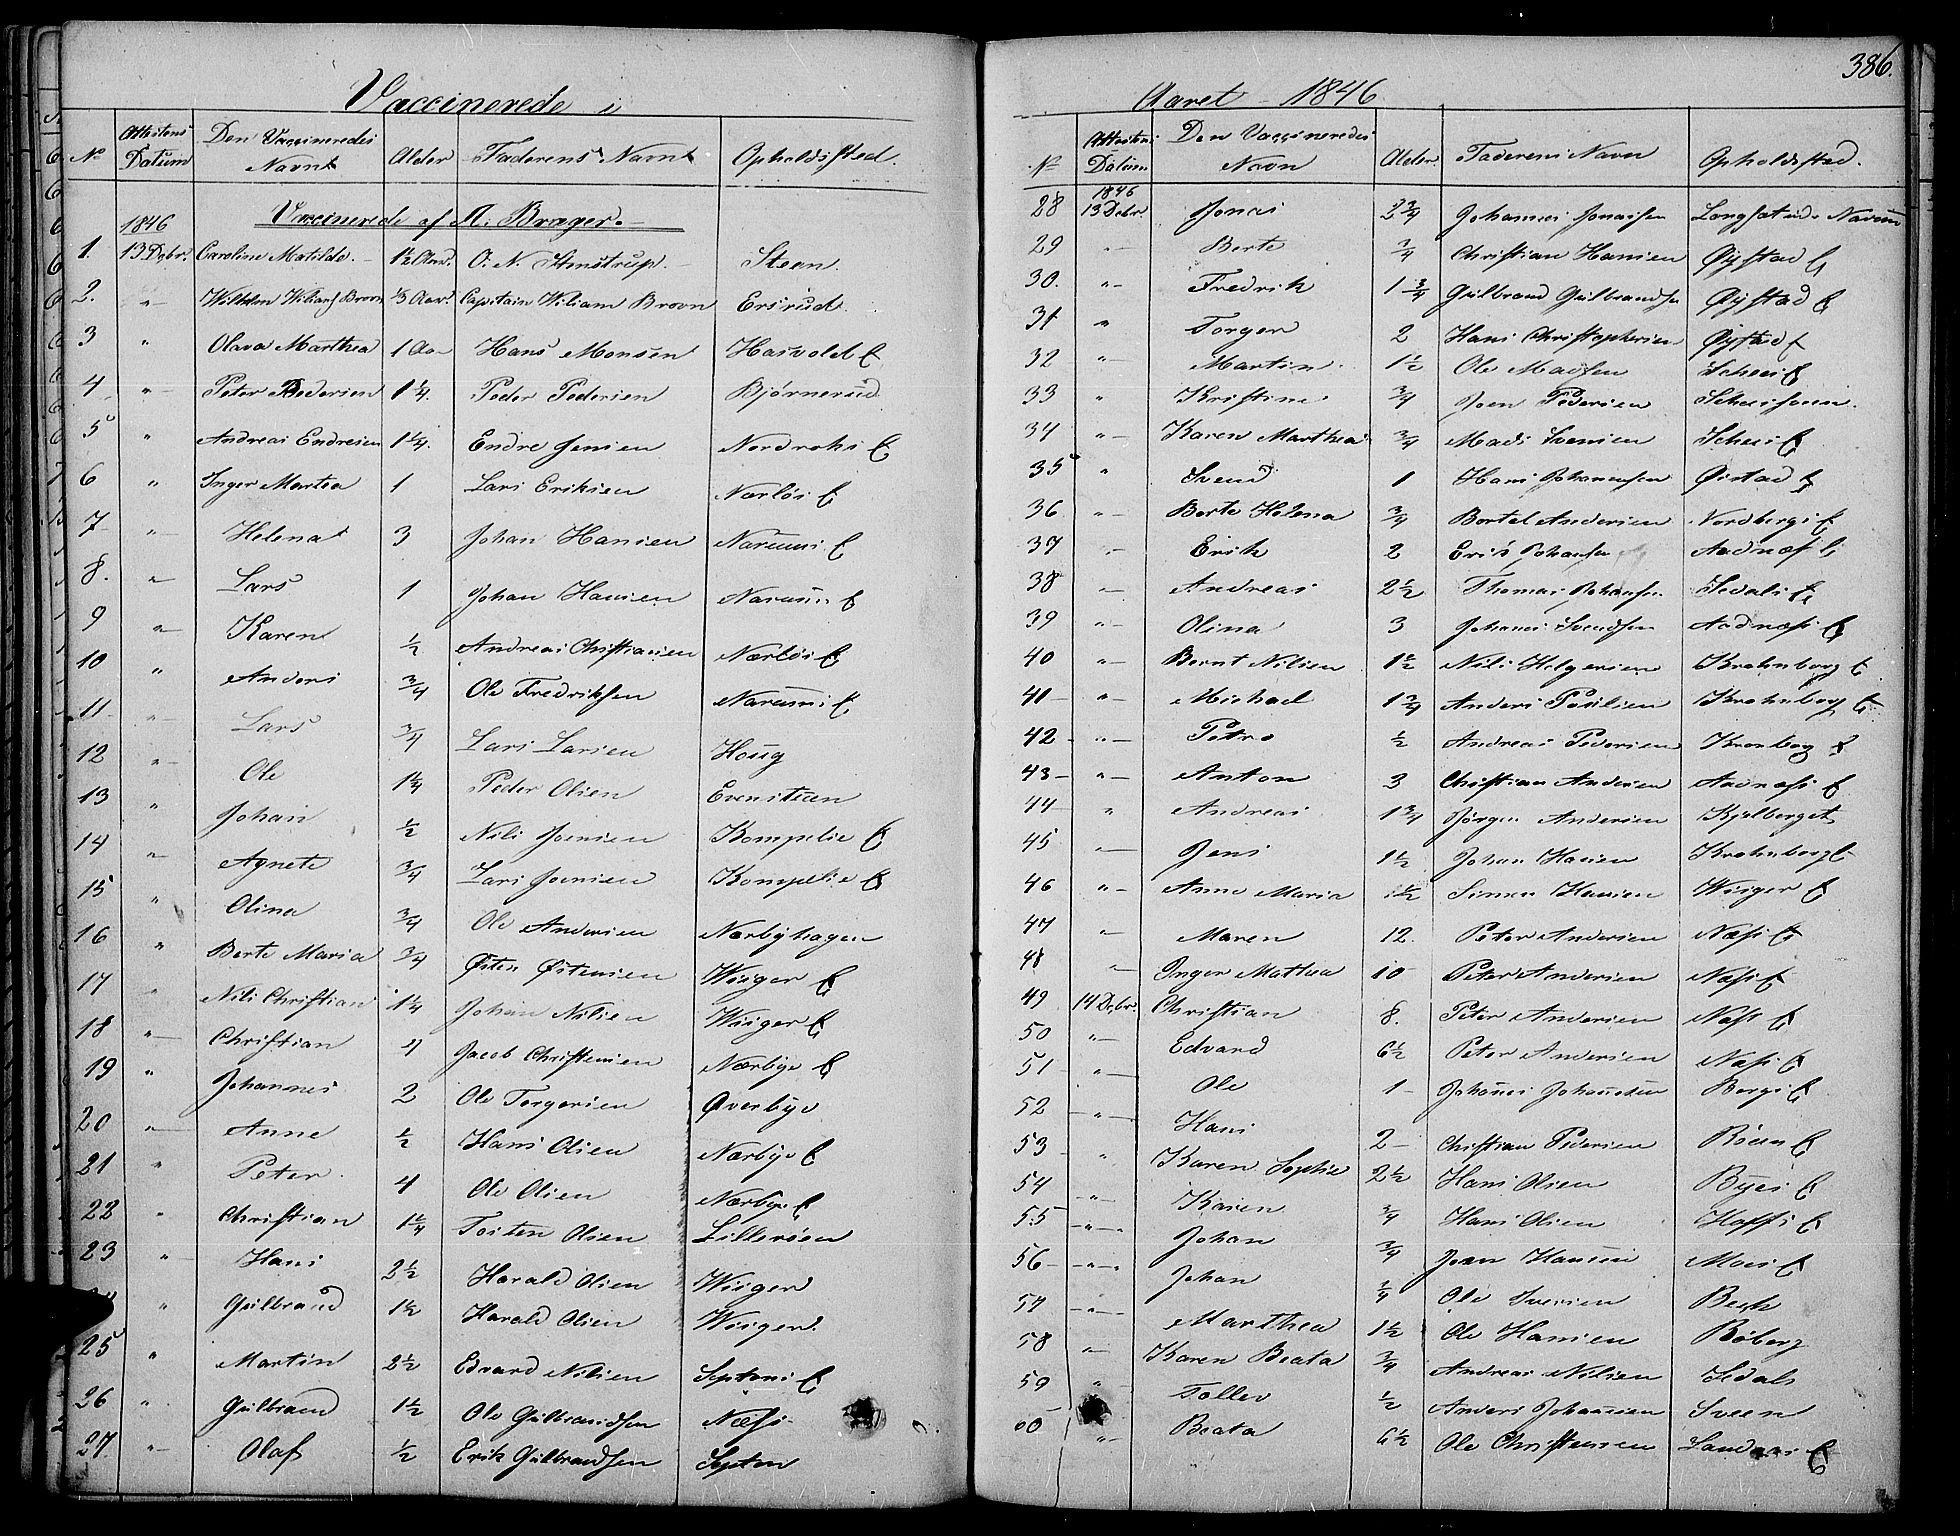 Vaccinerede i
No Attestens Datum Den Vaccineredes Navn Alder Faderens Navn Opholdssted.
1846 Vaccinerede af A. Brager.
1. 13 Debr. Caroline Matilde 1½ Aar. O. N. Stenstrup. Steen.
2. " Wilhelm Brovn ⅓ Aar. Capitain Wiliam Brovn Ersrud.
3 " Olava Marthea 1 Aar Hans Monsen Hasvold E
4 " Peter Pedersen 1¼. Peder Pedersen Bjørnerud
5 " Andreas Endresen 1¼. Endre Jensen Nordrohs E
6 " Inger Martea 1 Lars Eriksen Nærløs E
7 " Helena 3 Johan Hansen Narums E
8. " Lars 1 Johan Hansen Narums E
9 " Karen ½ Andreas Christiansen Nærløs E
10 " Anders ¾ Ole Fredriksen Narums E
11 " Lars ¾ Lars Larsen Houg
12 " Ole 1½ Peder Olsen Evenstuen
13 " Johan ½ Nils Joensen Kompelie E
14 " Agnete ¾ Lars Joensen Kompelie E
15 " Olina ¾ Ole Andersen Nærbyhagen
16 " Berte Maria ¾ Østen Østensen Wisiger E
17 " Nils Christian 1¼ Johan Nilsen Wisiger E
18 " Christian 4 Jacob Christensen Nærbye E
19 " Johannes 2 Ole Torgersen Øverbye
20 " Anne ½ Hans Olsen Nærbye E
21 " Peter 4 Ole Olsen Nærbye E
22 " Christian 1¼ Tosten Olsen Lillerøen
23 " Hans 2½ Harald Olsen Wisiger
" Gulbrand 1½ Harald Olsen Wisiger
25 " Martin 2½ Edvard Nilsen Septons E
26 " Gulbrand 1½ Ole Gulbrandsen Næss
27. " Olaf ½ Erik Gulbrandsen Septon
386.
Aaret 1846
No Attestens Datum Den Vaccineredes Navn Alder Faderens Navn Opholdsstad.
28 1846 13 Debr. Jonas 2¾ Johannes Jonassen Narum
29 " Berte ¾ Christian Hansen Øystad E
30. " Fredrik 1¾ Gulbrand Gulbrandsen Øystad E
31 " Torger 2 Hans Christophersen Øystad E
32 " Martin 1½ Ole Madsen Scheis E
33 " Kristine ¾ Joen Pedersen
34 " Karen Marthea ¾ Mads Svensen Scheis E
35 " Svend 1 Hans Johannesen Øistad E
36 " Berte Helena ¾ Bertel Andersen Nordbergs E
37 " Erik 2 Johansen Aadnæs E
38 " Andreas 2½ Thomas Johansen Sedals E
39 " Olina 3 Johannes Svendsen Aadnæss E
40 " Bernt Nilsen 1½ Nils Helgersen Krahnborg E
41 " Michael 1¾ Anders Paulsen Krahnborg E
42 " Petro ½ Andreas Pedersen Kronborg E
43 " Anton 3 Christian Andersen Aadnæss E
44 " Andreas 1¾ Jørgen Andersen Kjølberget
45 " Jens 1½ Johan Hansen Krahnborg E
46 " Anne Maria 1½ Simen Hansen Wisiger E
47 " Maren 12. Peter Andersen Næss E
48 " Inger Mathea 10 Peter Andersen Næss E
49 14 Debr. Christian 8. Peter Andersen Næss E
50 " Edvard 6½ Peter Andersen Næss E
51 " Ole 1 Johanes Johannesen Bergs E
52 " Hans 2 Christian Pedersen Røen E
53 " Karen Sophie 2½ Hans Olsen Byes E
54 " Karen ¾ Hans Olsen Hoffs E
55 " Johan ¾ Joen Hansen Moes E
56 " Johan ¾ Ole Iversen
57 " Marthea 1½ Ole Hansen Böberg
58 " Karen Beata ¾ Andreas Nilsen Sedals
59 " Tollev ½ Anders Johansen Sveen
60 " Beata 6½ Ole Christensen E